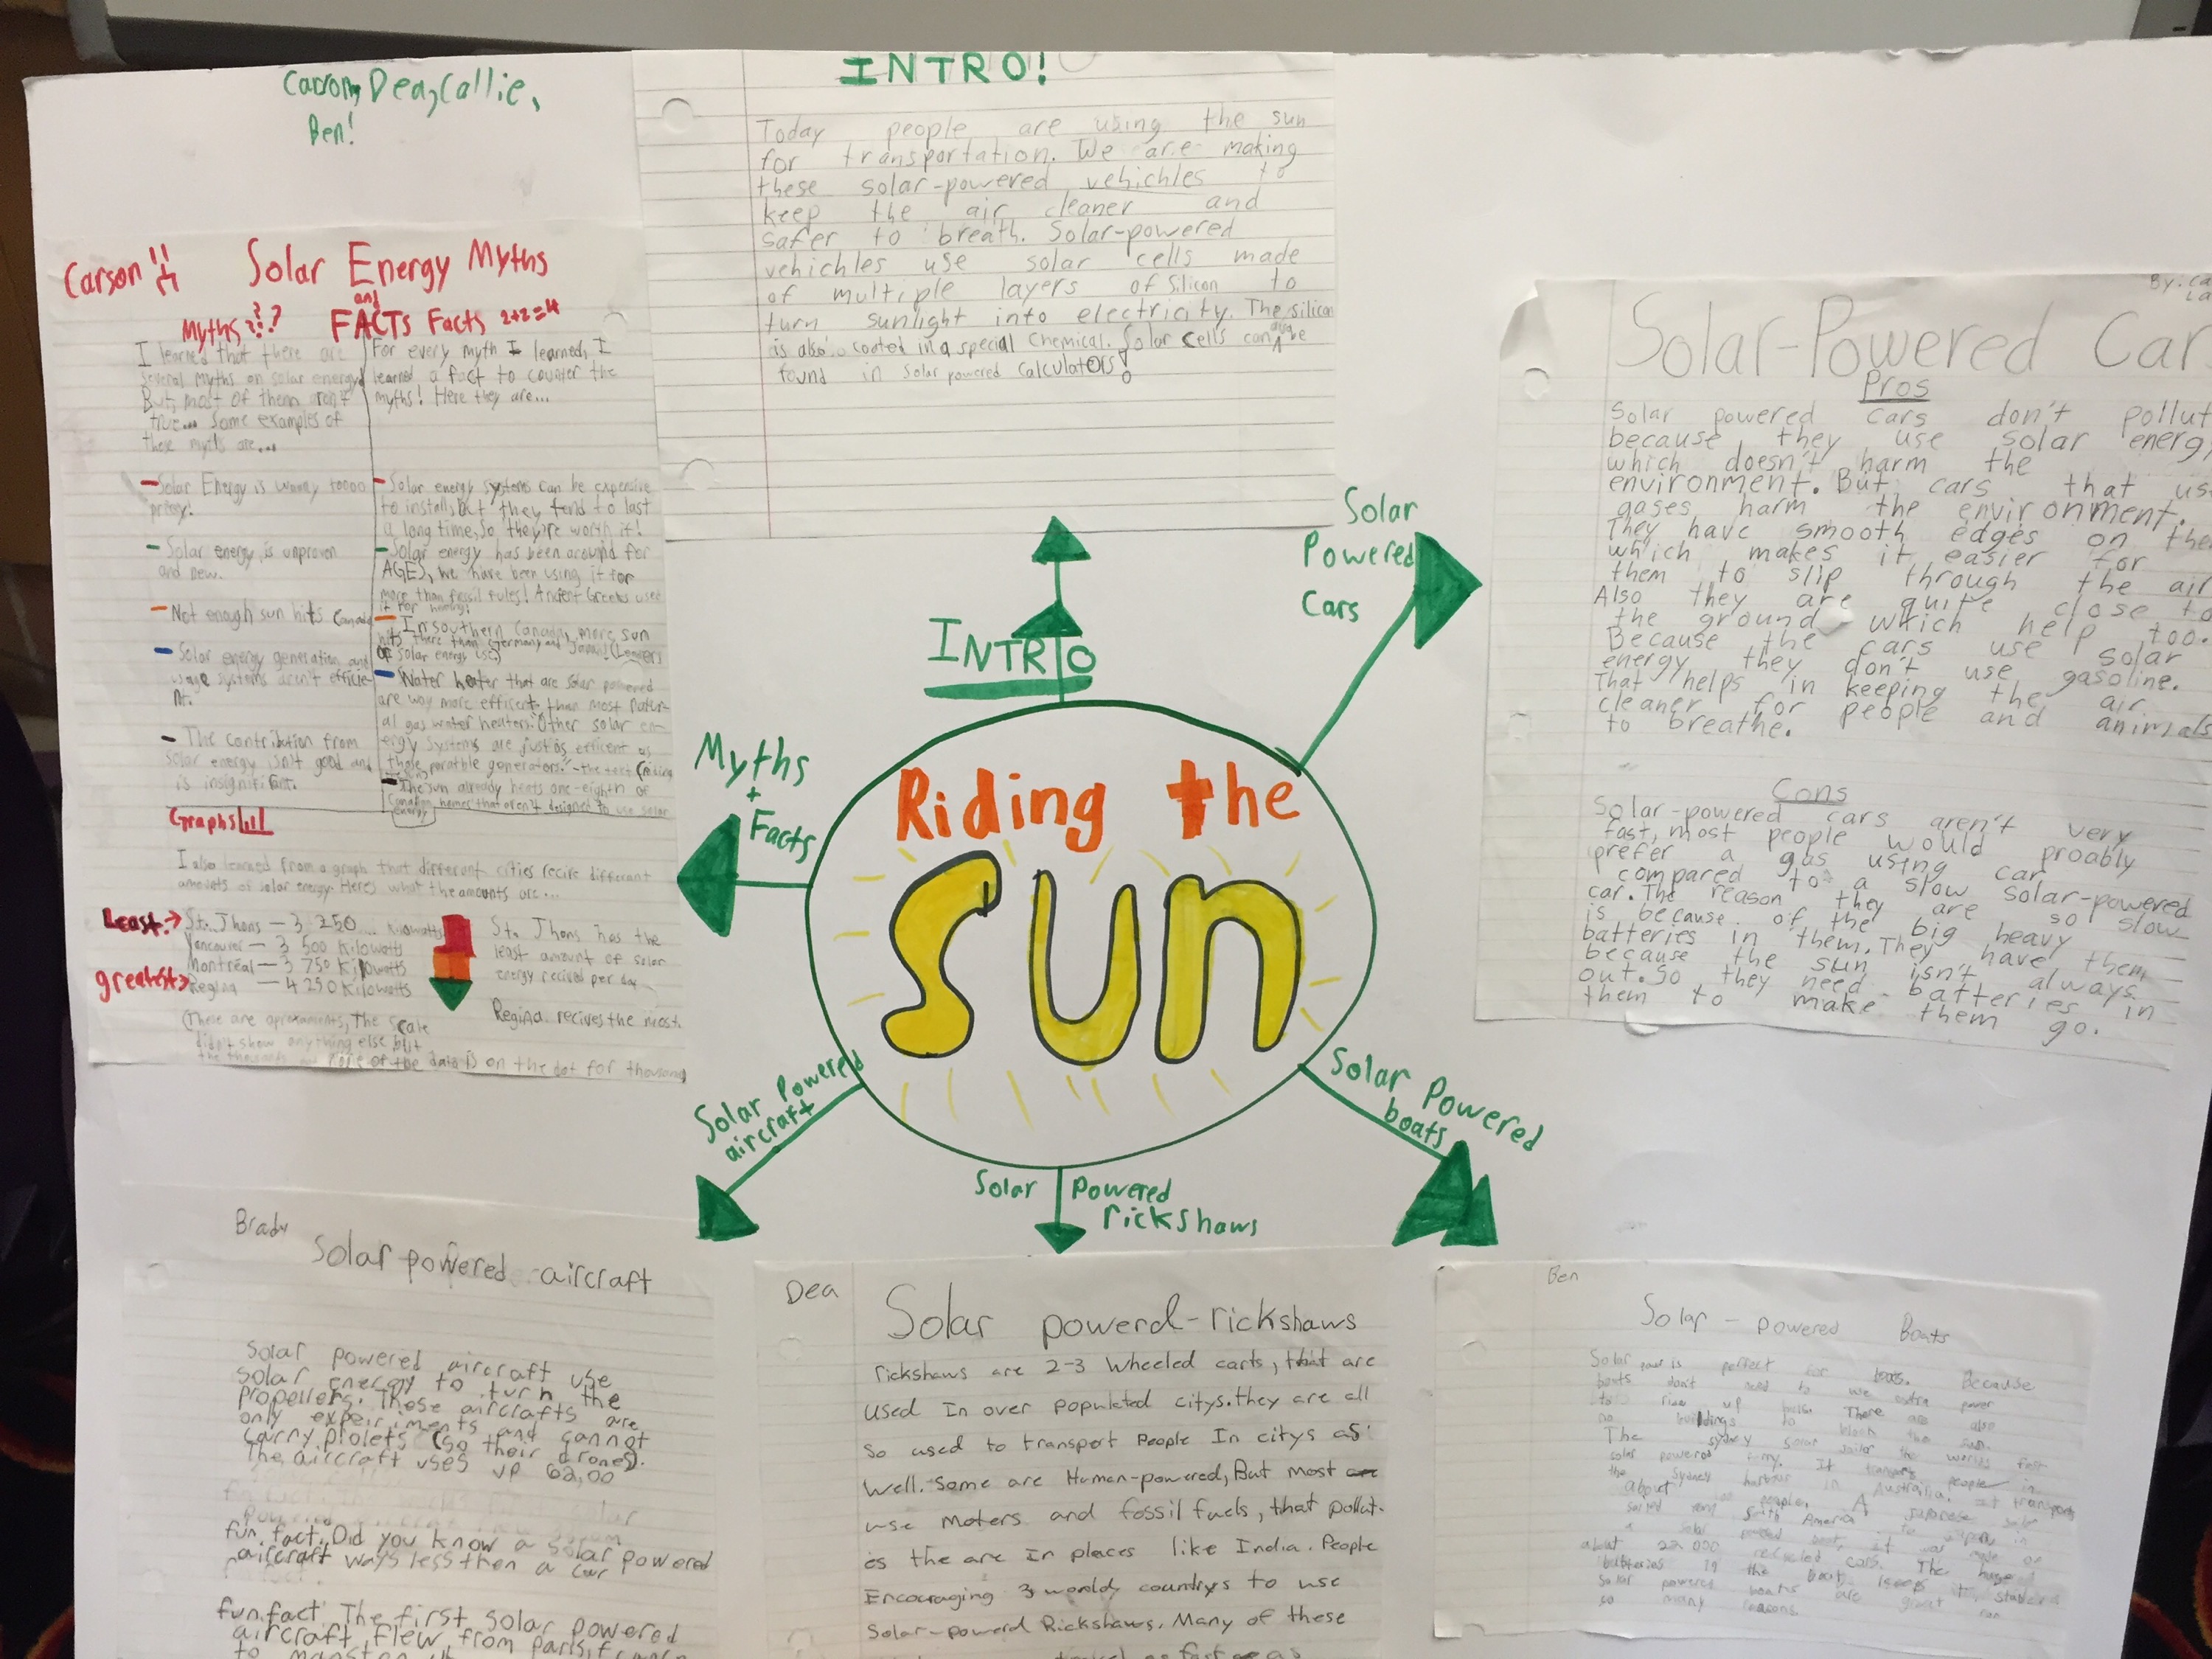 Carson, Dea, Callie,
Ben!
INTRO!
Today people are using the sun
for transportation. We are making
these solar-powered vehichles to
keep the air cleaner and
safer to breath. Solar-powered
vehichles use solar cells made
of multiple layers of Silicon to
turn sunlight into electricity. The silicon
is also coated in a special Chemical. Solar Cells can also be
found in Solar powered Calculators!
Carson
Solar Energy Myths
and
Myths??? FACTS Facts 2+2=4
I learned that there are
several myths on solar energy
But, most of them aren't
true... Some examples of
these myths are...
For every myth I learned, I
learned a fact to counter the
myths! Here they are...
- Solar Energy is waaay toooo
pricey!
- Solar energy systems can be expensive
to install, but they tend to last
a long time, So they're worth it!
- Solar energy is unproven
and new.
- Solar energy has been around for
AGES, we have been using it for
more than fossil fules! Ancient Greeks used
it for heating!
- Not enough sun hits Canada
- In southern Canada, more sun
hits there than Germany and Japan! (Leaders
of solar energy use)
- Solar energy generation and
systems aren't efficie-
nt.
- Water heater that are solar powered
are way more efficent than most natur-
al gas water heaters. Other solar en-
ergy systems are just as efficent as
those portable generators." -the text (riding
- The contribution from
Solar energy isn't good and
is insignifigant.
- The sun already heats one-eighth of
Canadian homes that aren't designed to use solar
energy
Graphs
I also learned from a graph that different cities recive different
amounts of solar energy. Heres what the amounts are...
Least → St. Jhons — 3 250 kilowatts
Vancouver — 3 500 Kilowatts
Montréal — 3 750 Kilowatts
greatest → Regina — 4 250 Kilowatts
St. Jhons has the
least amount of solar
energy recived per day
Regina recives the most
(These are The Scale
didn't show anything else but
the thousands of the data is on the dot for thousand
INTRO
Solar
Powered
Cars
Myths
+
Facts
Riding the
sun
Solar Powered
aircraft
Solar Powered
rickshaws
Solar Powered
boats
By: Ca
La
Solar-Powered Car
Pros
Solar powered cars don't pollut
because they use solar energy
which doesn't harm the
environment. But cars that us
gases harm the environment.
They have smooth edges on the
which makes it easier for
them to slip through the air
Also they are quite close to
the ground which help too.
Because the cars use solar
energy they don't use gasoline.
That helps in keeping the air
cleaner for people and animals
to breathe.
Cons
Solar-powered cars aren't very
fast, most people would proably
prefer a gas using car
compared to a slow solar-powered
car. The reason they are so slow
is because of the big heavy
batteries in them. They have them
because the sun isn't always
out. So they need batteries in
them to make them go.
Brady
Solar powered aircraft
Solar powered aircraft use
solar energy to turn the
propellers. These aircrafts are
only expeiriments and cannot
carry piolets (so their drones).
The aircraft uses up 62,00
fun fact: Did you know a solar powered
aircraft ways less then a car
fun fact: The first solar powered
aircraft flew from paris, france
to
Dea
Solar powerd-rickshaws
rickshaws are 2-3 Wheeled carts, that are
used In over populated citys. they are all
so used to transport People In citys as
well. Some are Human-powered, But most are
use Moters and fossil fuels, that pollut.
as the are In places like India. People
Encouraging 3 worldy countrys to use
Solar-powerd Rickshaws. Many of these
as fast as
Ben
Solar - powered Boats
Solar is perfect for boats. Because
boats don't need to use extra power
to rise up hills. There are also
no buildings to block the sun.
The sydney solar sailor the worlds first
solar powered ferry. It transports people in
the Sydney harbour in Australia. It transports
about people. A japanese
sailed South America to
a solar powered boat, it was made of
about 22 000 recycled cans. The huge
batteries in the boat keep it stable
Solar powered boats are great for
so many reasons.